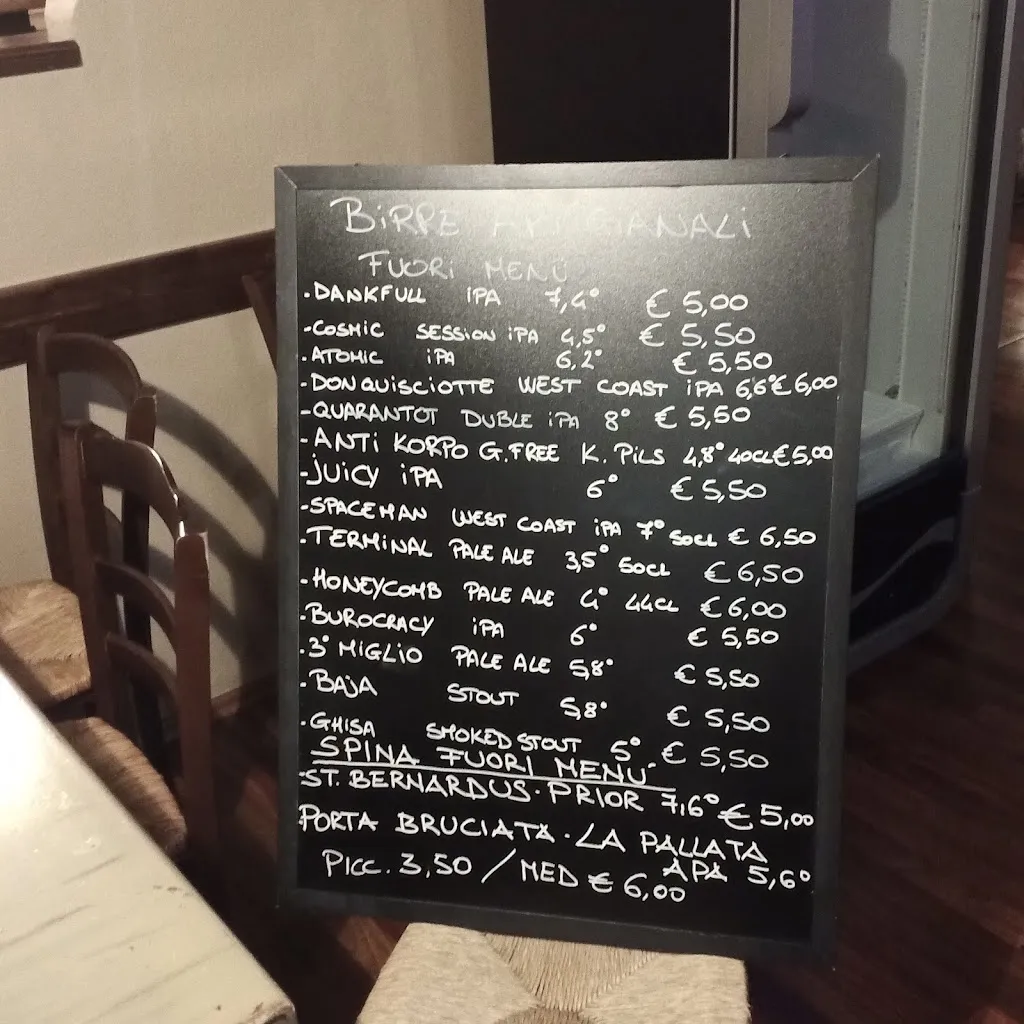 BiRRE ARTiGiANALi
FUORi MENÙ
·DANKFULL iPA 7,4° € 5,00
-COSMIC SESSION iPA 4,5° € 5,50
·ATOMIC iPA 6,2° € 5,50
-DON QUISCIOTTE WEST COAST iPA 6,6° € 6,00
-QUARANTOT DUBLE iPA 8° € 5,50
-ANTI KORPO G.FREE K. PiLS 4,8° 40CL € 5,00
-JUICY iPA 6° € 5,50
-SPACEMAN WEST COAST iPA 7° 50CL € 6,50
·TERMINAL PALE ALE 3,5° 50CL € 6,50
-HONEYCOMB PALE ALE 4° 44CL € 6,00
·BUROCRACY iPA 6° € 5,50
·3° MIGLIO PALE ALE 5,8° € 5,50
·BAJA STOUT 5,8° € 5,50
·GHISA SMOKED STOUT 5° € 5,50
SPINA FUORI MENÙ
·ST. BERNARDUS · PRIOR 7,6° € 5,00
·PORTA BRUCIATA · LA PALLATA
APA 5,6°
PICC. 3,50 / MED € 6,00